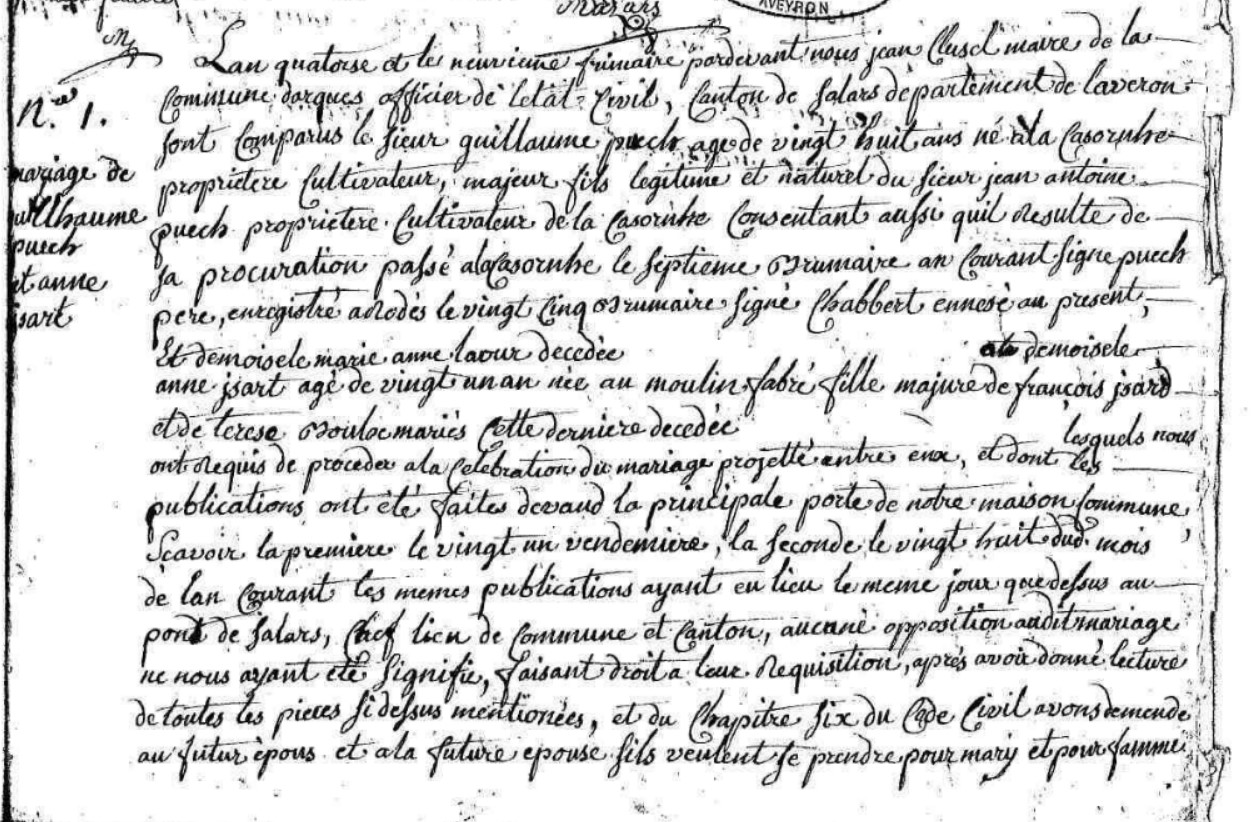 Marurs
AVEYRON
N.ro 1.
mariage de
uillhaume
puech
et anne
jsart
Lan quatorse et le neuvieme frimaire pardevant nous jean Clusel maire de la
Commune darques officier de letat Civil, Canton de Salars departement de laveron
sont Comparus le sieur guillaume puech age de vingt huit ans né ala Casornhe
proprietere Cultivateur, majeur fils legitime et naturel du sieur jean antoine
puech proprietere Cultivateur de la Casornhe Consentant aussi quil Resulte de
sa procuration passé ala Casornhe le septieme Brumaire an Courant signe puech
pere, enregistré a Rodés le vingt Cinq Brumaire signé Chabbert ennexé au present,
Et demoisele marie anne laour decedée demoisele
anne jsart agé de vingt un an née au moulin fabré fille majure de françois jsard
et de terese Boulse mariés Cette derniere decedée lesquels nous
ont Requis de proceder ala Celebration du mariage projetté entre eux, et dont les
publications ont été faites devand la principale porte de notre maison Commune,
Scavoir la premiere le vingt un vendemiere, la seconde le vingt huit dud. mois
de lan Courant les memes publications ayant eu lieu le meme jour que dessus au
pont de Salars, Chef lieu de Commune et Canton, aucune opposition audit mariage
ne nous ayant été signifie, faisant droit a leur Requisition, aprés avoir donné lecture
de toutes les pieces si dessus mentionées, et du Chapitre six du Code Civil avons demende
au futur èpous et ala future epouse sils veulent se prendre pour mary et pour famme